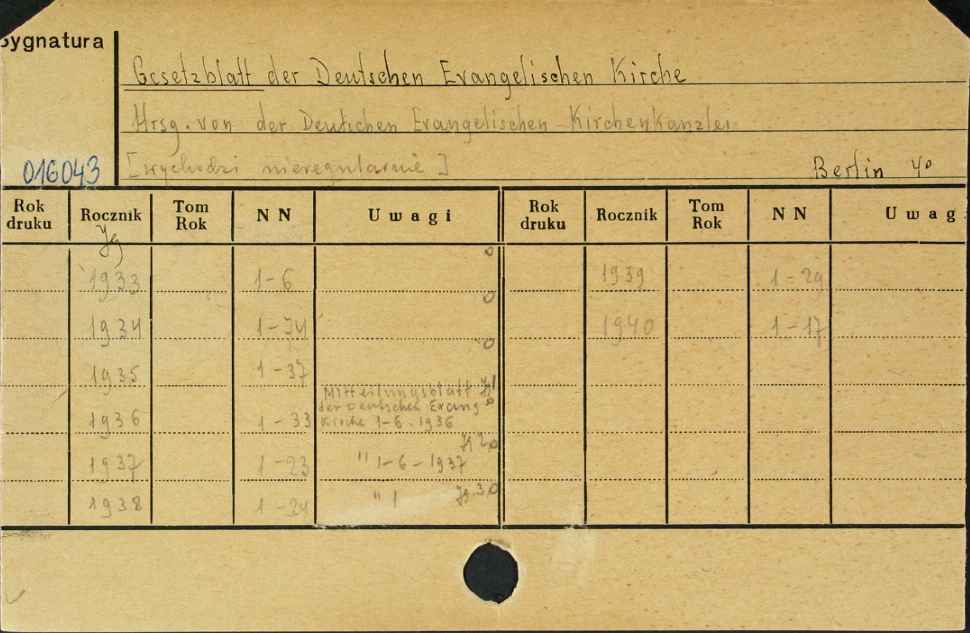 Sygnatura
Gesetzblatt der Deutschen Evangelischen Kirche
Hrsg. von der Deutschen Evangelischen Kirchenkanzlei
016043 [wychodzi nieregularnie] Berlin 4°
Rok druku Rocznik Tom Rok N N Uwagi Rok druku Rocznik Tom Rok N N Uwagi
Jg
1933 1-6 1939 1-29
1934 1-74 1940 1-17
1935 1-37
Mitteilungsblatt Jg1
der Deutschen Evang
1936 1-33 Kirche 1-6-1936
Jg 2
1937 1-23 " 1-6-1937
1938 1-24 " 1 Jg. 3